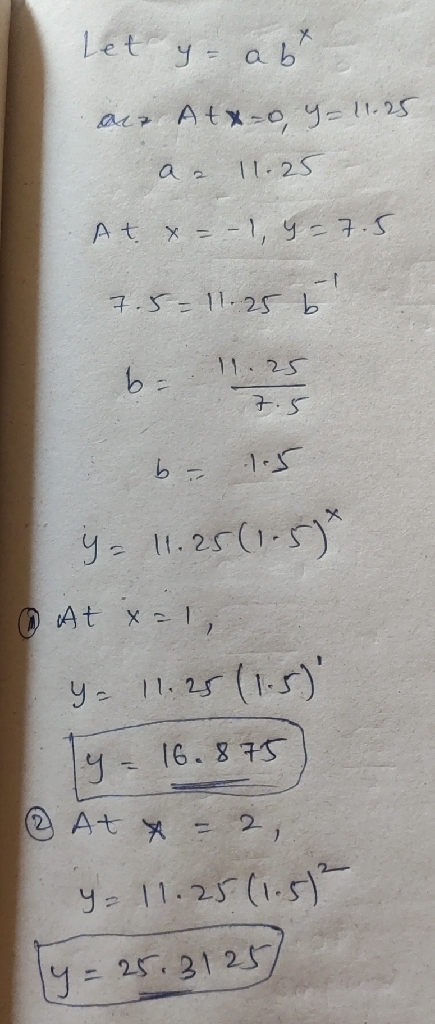 Let y = ab^x
At x=0, y=11.25
a = 11.25
At x = -1, y = 7.5
7.5 = 11.25 b^-1
b = 11.25 / 7.5
b = 1.5
y = 11.25(1.5)^x
① At x=1,
y = 11.25 (1.5)^1
y = 16.875
② At x = 2,
y = 11.25 (1.5)^2
y = 25.3125